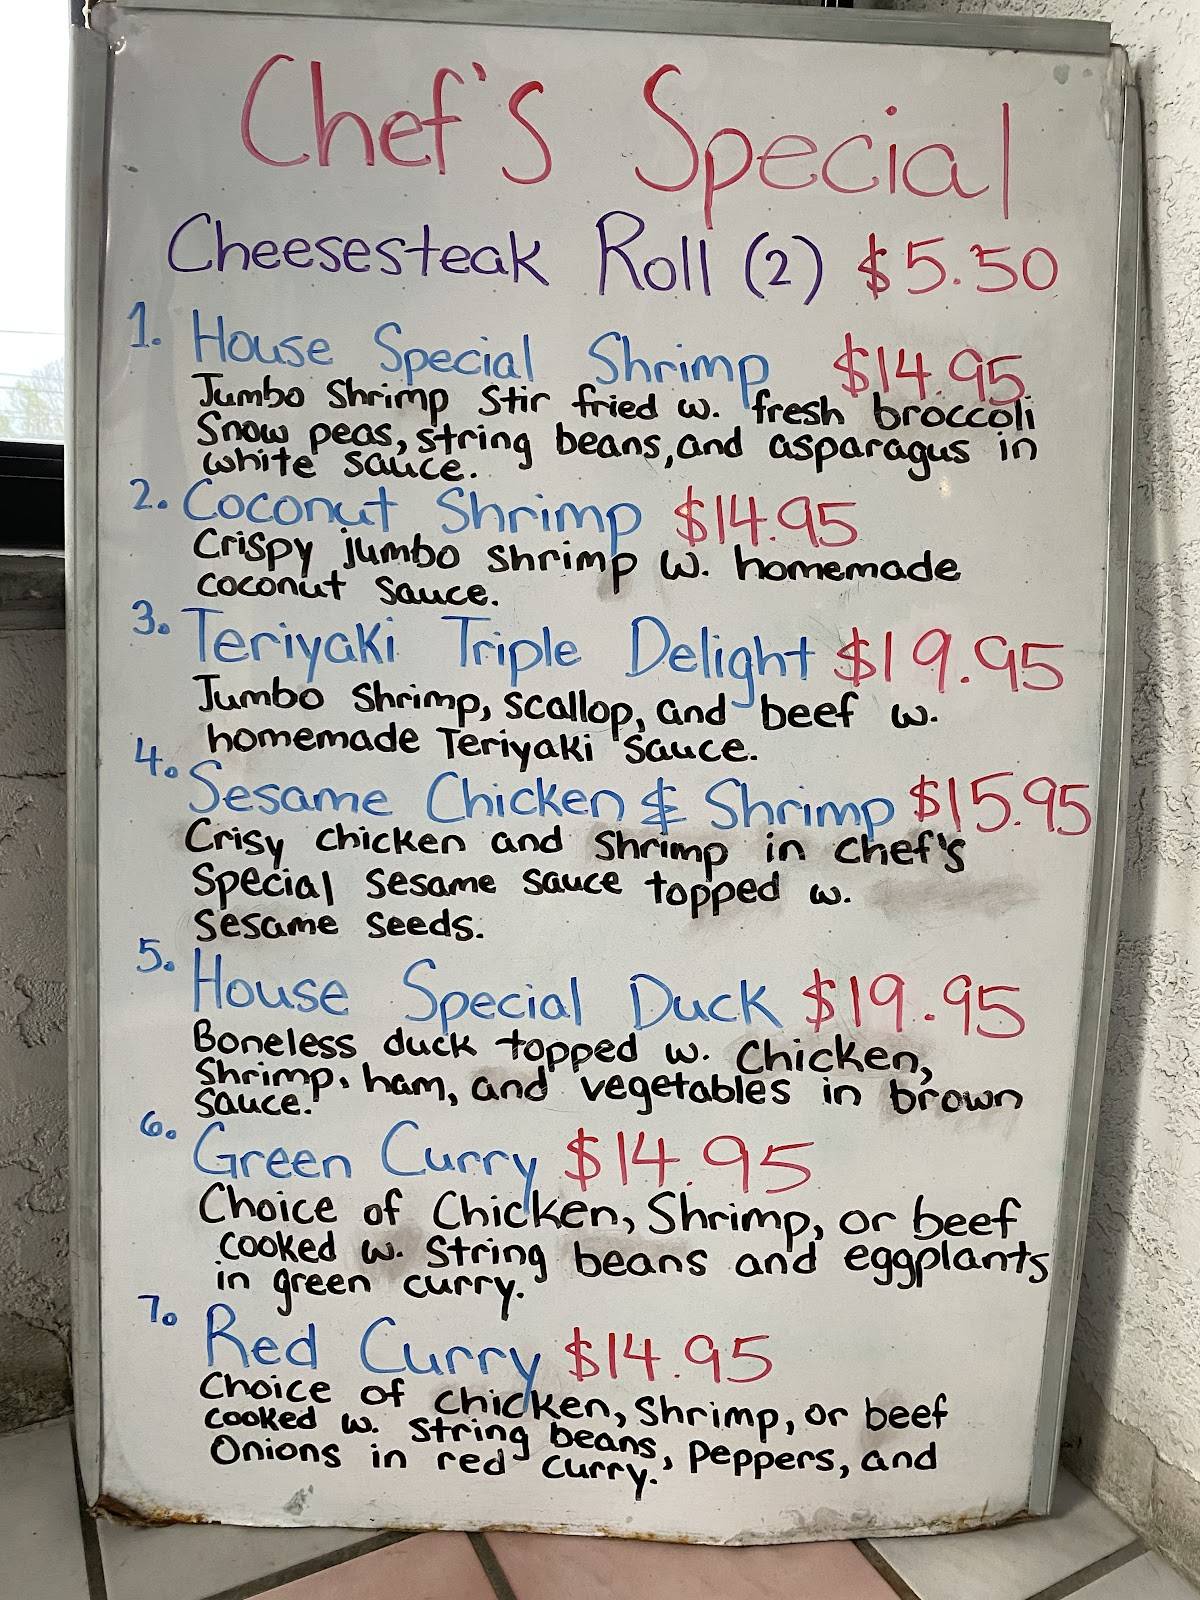 Chef's Special
Cheesesteak Roll (2) $5.50
1. House Special Shrimp $14.95
Jumbo Shrimp Stir fried w. fresh broccoli
Snow peas, string beans, and asparagus in
white sauce.
2. Coconut Shrimp $14.95
Crispy jumbo shrimp w. homemade
coconut sauce.
3. Teriyaki Triple Delight $19.95
Jumbo Shrimp, scallop, and beef w.
homemade Teriyaki Sauce.
4. Sesame Chicken & Shrimp $15.95
Crisy chicken and Shrimp in chef's
Special sesame sauce topped w.
Sesame seeds.
5. House Special Duck $19.95
Boneless duck topped w. Chicken,
Shrimp, ham, and vegetables in brown
sauce.
6. Green Curry $14.95
Choice of Chicken, Shrimp, or beef
cooked w. string beans and eggplants
in green curry.
7. Red Curry $14.95
Choice of chicken, shrimp, or beef
cooked w. string beans, peppers, and
Onions in red curry.